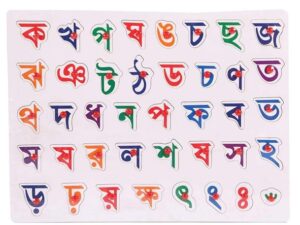 ক খ গ ঘ ঙ চ ছ জ
ঝ ঞ ট ঠ ড ঢ ণ ত
থ দ ধ ন প ফ ব ভ
ম য র ল শ ষ স হ
ড় ঢ় য় ক্ষ ৎ ং ঃ ঁ